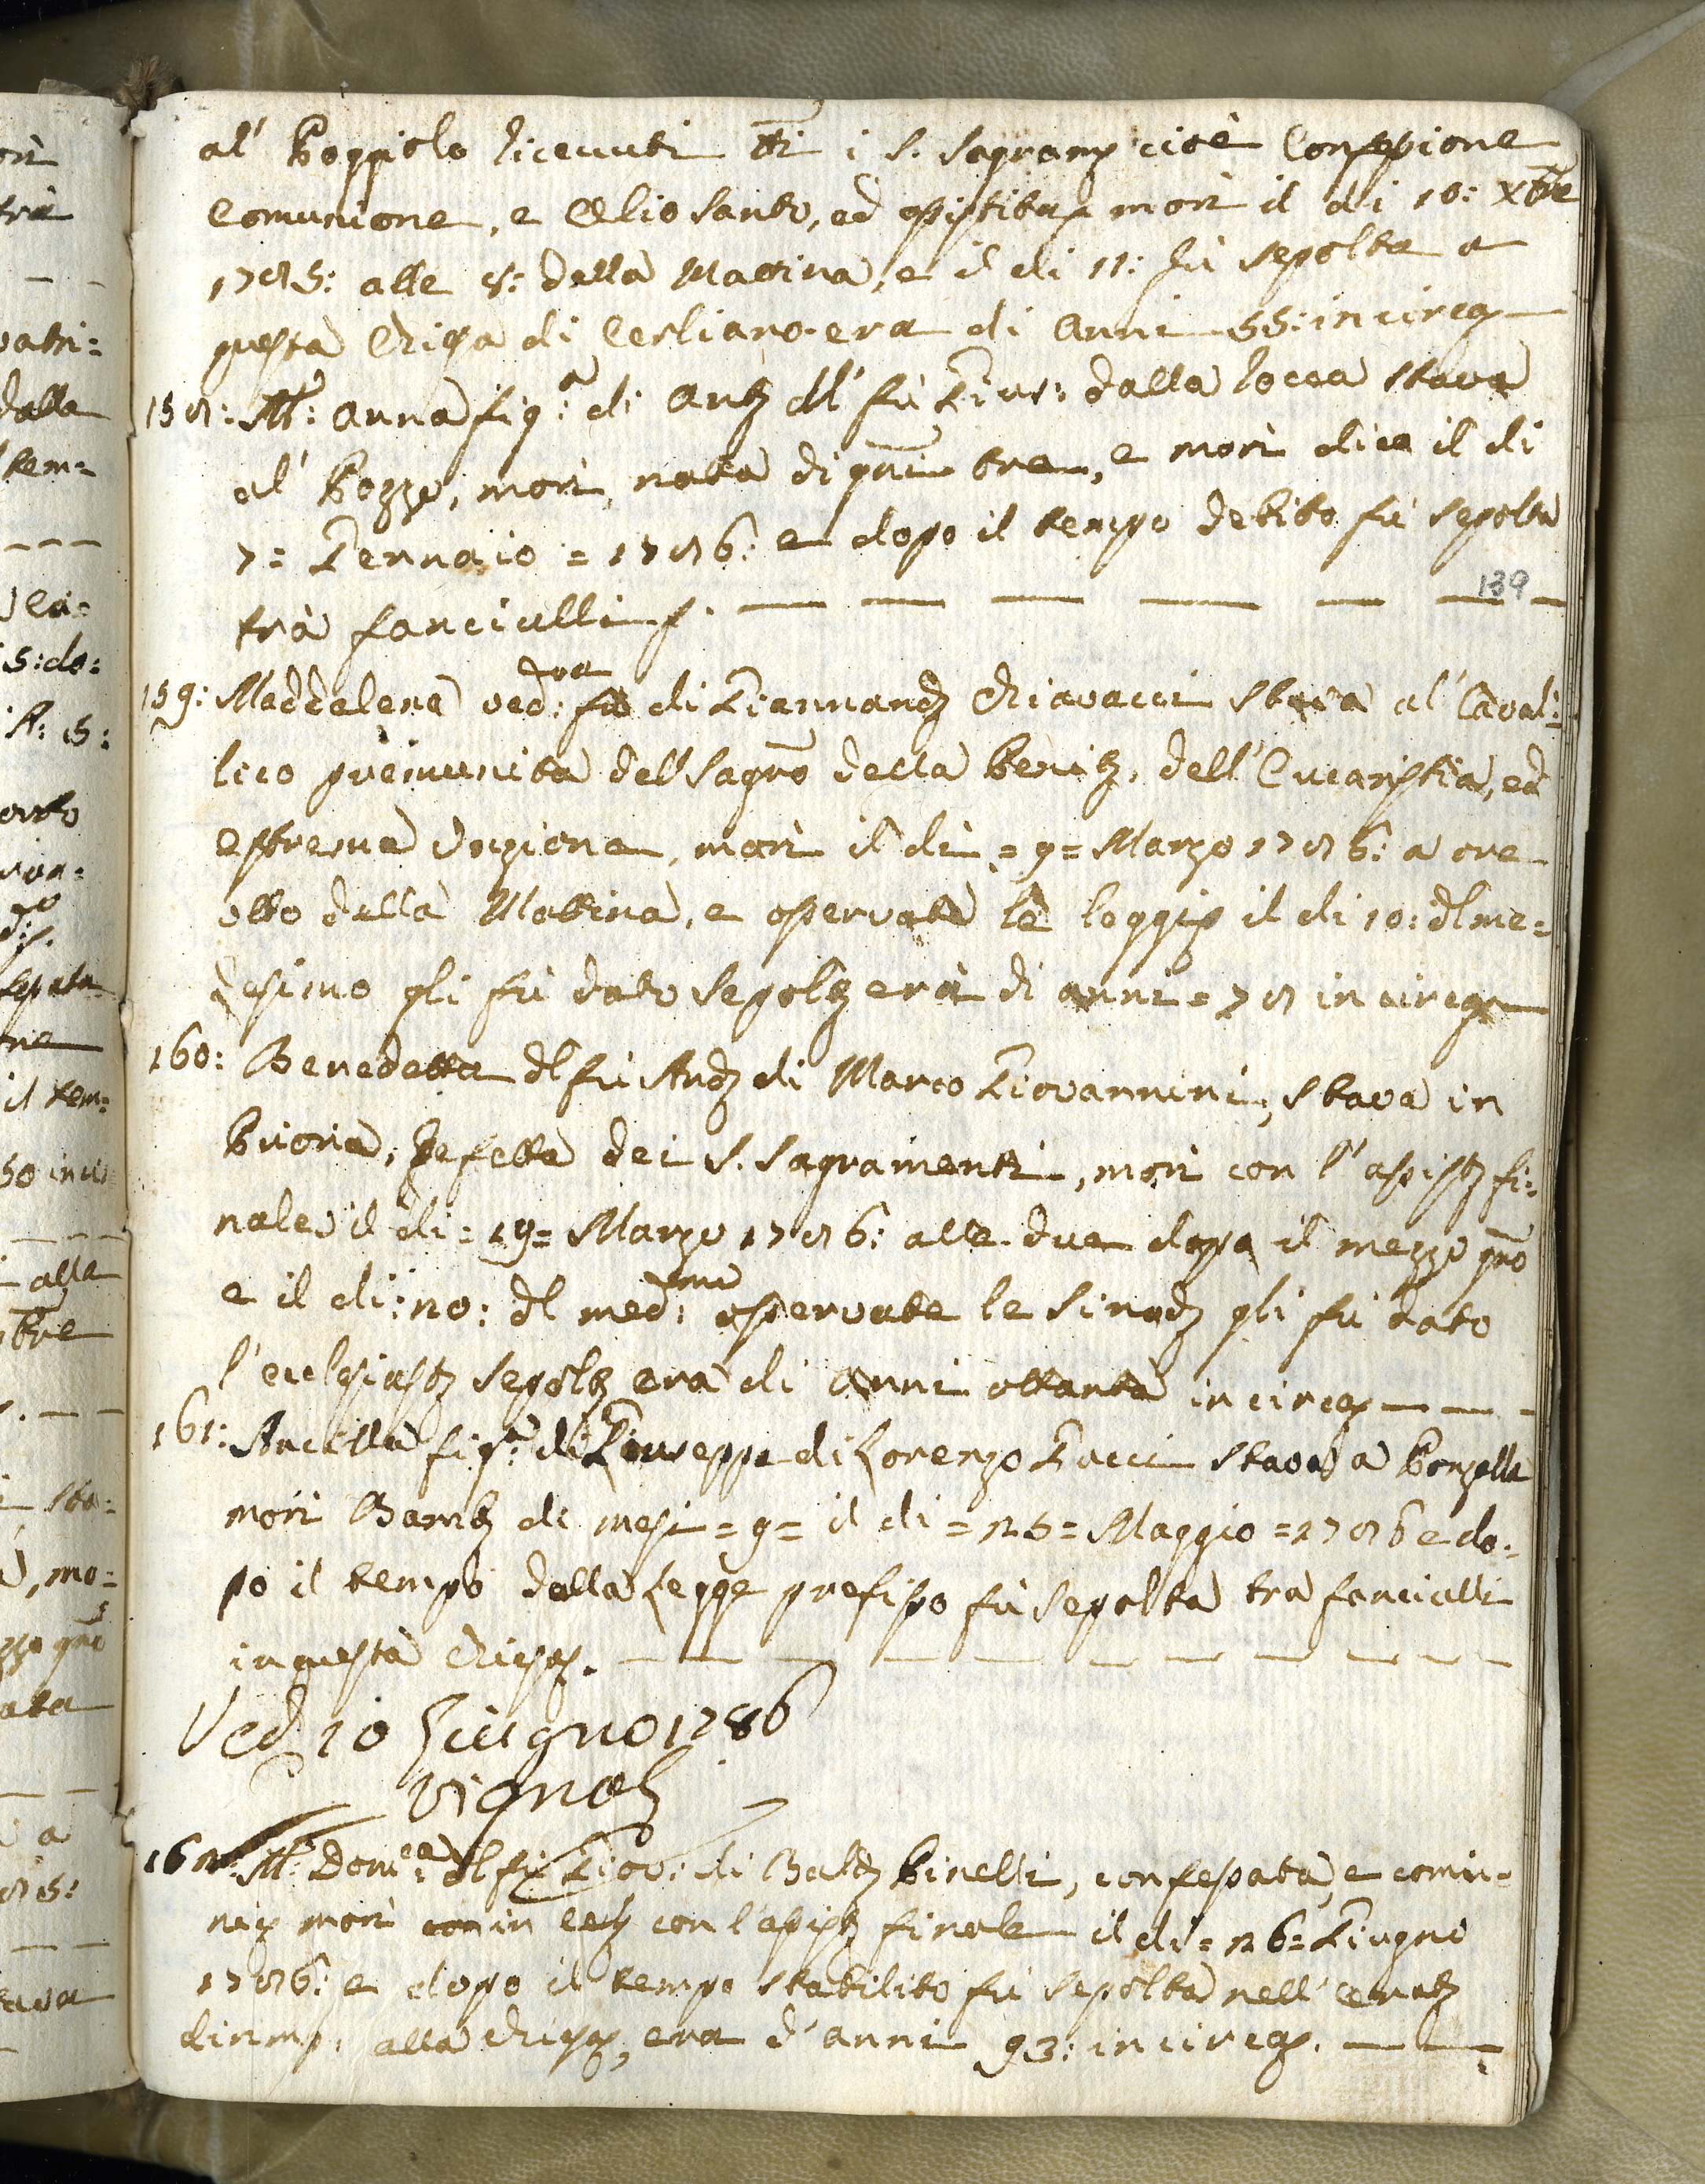 al' Poggiolo ricevuti tti i S. Sagram cioè Confessione
Comunione, e Olio Santo, ed assistita morì il di 10: Xbre
1785: alle 8: della Mattina, e il di 11: fù sepolta a
questa Chiesa di Cerliano. era di Anni 55: in circa
158: M: Anna fig:a di Ant dl' fù Gius: dalla Rocca stava
al' Pozzo, morì, nata di gni tre, e morì dico il di
7 = Gennaio = 1786: e dopo il tempo debito fù sepolta
trà fanciulli
139
159: Maddalena ved:va di Giannand Chiavacci stava al' Caval:
lico premunita del Sagro della Penit, dell' Eucaristia, ed
estrema Unzione, morì il di = 9 = Marzo 1786: a ore
otto della Mattina, e osservate le leggi il di 10: dl me=
desimo gli fù dato sepolt era di anni = 78 in circa
160: Benedetta dl fù And di Marco Giovannini, stava in
, refetta dei S. Sagramenti, morì con l' assist fi:
nale il di = 19 = Marzo 1786: alle due dopo il mezzo gno
e il di: 20: dl med:mo osservate le Sinod gli fù dato
l' ecclesiast sepolt era di Anni ottanta in circa
161: Ancilla fig:a di Giuseppe di Lorenzo Gucci stava a Ponzalla
morì Bamb di mesi = 9 = il di = 25 = Maggio = 1786 e do:
po il tempo dalla Legge prefisso fù sepolta tra fanciulli
in questa Chiesa.
Ved 10 Giugno 1786
Vignoli
162: M: Dom:ca dl fù Giov: di Bald Pinelli, confessata, e comu=
nic morì con in con l' assist finale il di = 26 = Giugno
1786: e dopo il tempo stabilito fù sepolta nell'
dinmp. alla Chiesa, era d' anni 93: in circa.